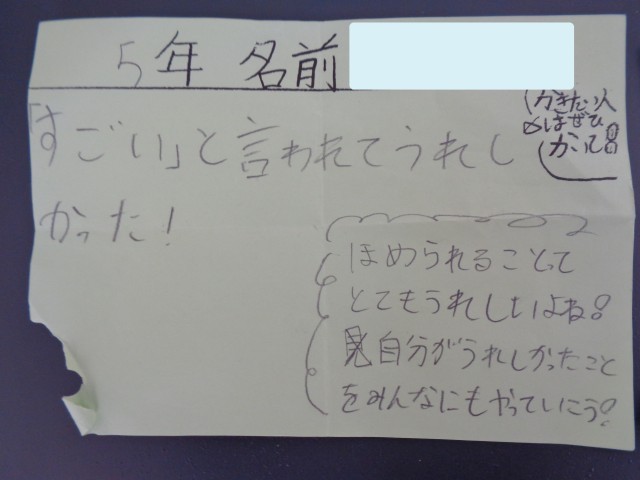 5年 名前
かきたい人
はぜひ
かいて!
「すごい」と言われてうれし
かった!
ほめられることって
とてもうれしいよね!
自分がうれしかったこと
をみんなにもやっていこう!